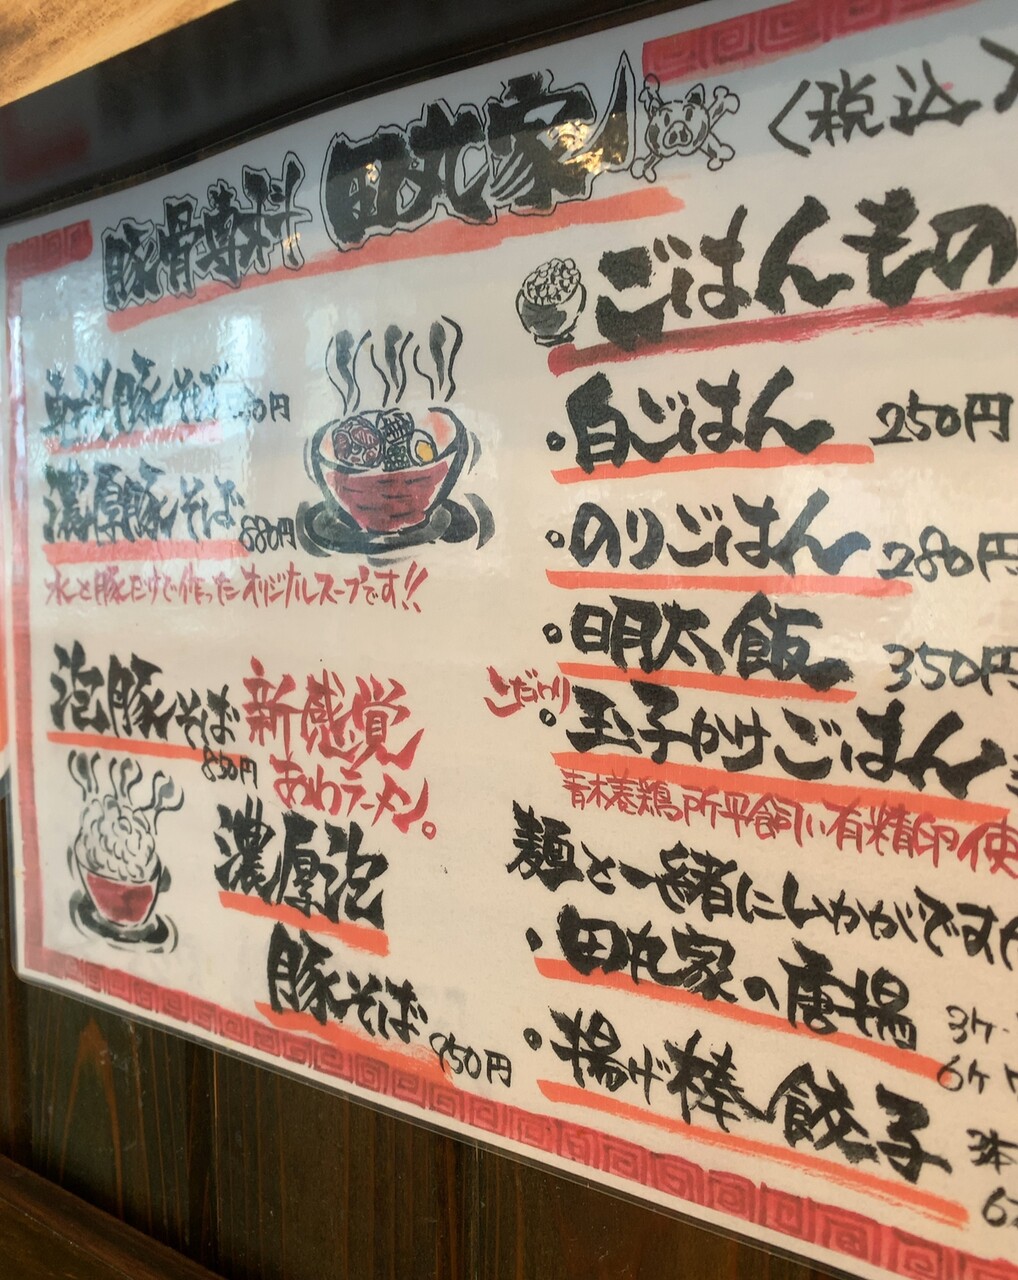 豚骨専科 田丸家
〈税込〉
豚そば 円
濃厚豚そば 880円
水と豚だけで作ったオリジナルスープです!!
泡豚そば 850円
新感覚
あわラーメン。
濃厚泡
豚そば 950円
ごはんもの
・白ごはん 250円
・のりごはん 280円
・明太飯 350円
こだわり
・玉子かけごはん
青木養鶏所平飼い有精卵使
麺と一緒にいかがですか
・田丸家の唐揚 3ケ
6ケ
・揚げ棒餃子 3本
6